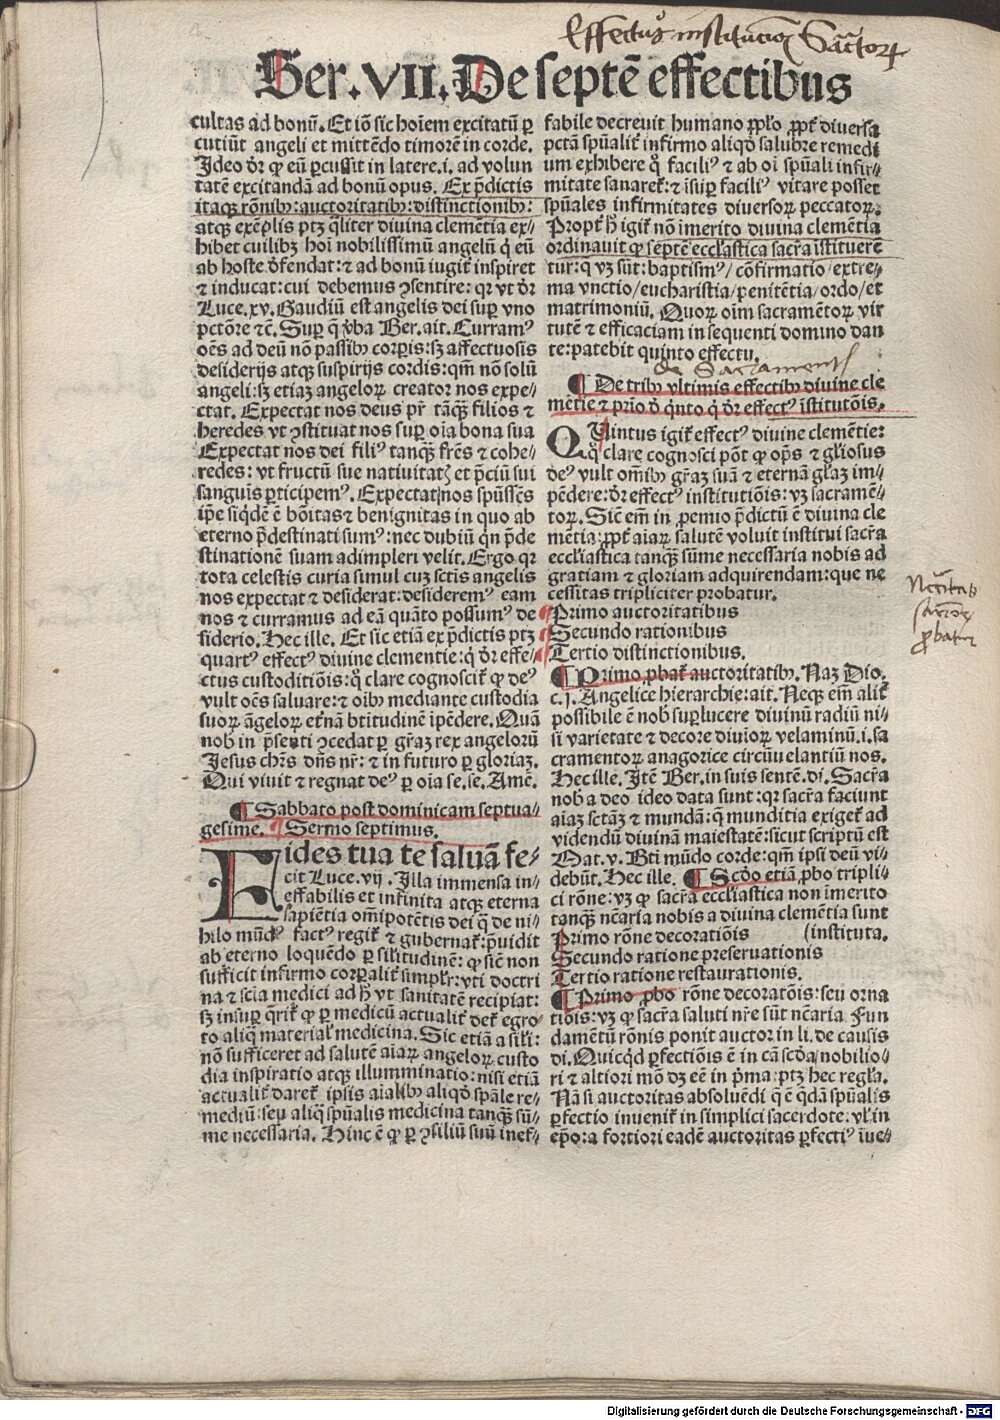 Effectus institucionū Sacramētorꝝ
Ser. VII. De septē effectibus
cultas ad bonū. Et iō sic hoīem excitatū ꝑ
cutiūt angeli et mittēdo timorē in corde.
Ideo dr̄ ꝙ eū ꝑcussit in latere .i. ad volun
tatē excitandā ad bonū opus. Ex p̄dictis
itaqꝫ rōnibꝰ: auctoritatibꝰ: distinctionibꝰ:
atqꝫ exēplis ptꝫ qͣliter diuina clemētia ex⸗
hibet cuilibꝫ hoī nobilissimū angelū q̇ eū
ab hoste d̓fendat: ⁊ ad bonū iugit̄ inspiret
⁊ inducat: cui debemus ꝯsentire: qꝛ vt dr̄
Luce .xv. Gaudiū est angelis dei suꝑ vno
pctōre ⁊c̄. Suꝑ q̄ v̓ba Ber. ait. Curramꝰ
oēs ad deū nō passibꝰ corꝑis: sꝫ affectuosis
desiderijs atqꝫ suspirijs cordis: qm̄ nō solū
angeli: sꝫ etiaꝫ angeloꝝ creator nos expe⸗
ctat. Expectat nos deus pr̄ tāqꝫ filios ⁊
heredes vt ꝯstituat nos suꝑ oīa bona sua
Expectat nos dei filiꝰ tanqꝫ fr̄es ⁊ cohe⸗
redes: vt fructū sue natiuitatꝭ ⁊ p̄ciū sui
sanguīs ꝑticipemꝰ. Expectat nos spūssc̄s
ip̄e siqͥdē ē bōitas ⁊ benignitas in quo ab
eterno p̄destinati sumꝰ: nec dubiū qn̄ p̄de
stinationē suam adimpleri velit. Ergo qꝛ
tota celestis curia simul cuꝫ sctīs angelis
nos expectat ⁊ desiderat: desideremꝰ eam
nos ⁊ curramus ad eā quāto possumꝰ de
siderio. Hec ille. Et sic etiā ex p̄dictis ptꝫ
quartꝰ effectꝰ diuine clementie: q̇ dr̄ effe⸗
ctus custoditiōis: q̊ clare cognoscit̄ ꝙ deꝰ
vult oēs saluare: ⁊ oibꝰ mediante custodia
suoꝝ āgeloꝝ et̓nā btitudinē īpēdere. Quā
nob̓ in p̄senti ꝯcedat ꝑ gr̄aꝫ rex angelorū
Jesus chr̄s dn̄s nr̄: ⁊ in futuro ꝑ gloriaꝫ.
Qui viuit ⁊ regnat deꝰ ꝑ oīa se. se. Amē.
¶ Sabbato post dominicam septua⸗
gesime. ¶ Sermo septimus.
Fides tua te saluā fe⸗
cit Luce .vij. Illa immensa in⸗
effabilis et infinita atqꝫ eterna
sapiētia om̄ipotētis dei q̄ de ni⸗
hilo mūdꝰ factꝰ regit̄ ⁊ gubernat̄: p̄uidit
ab eterno loquēdo ꝑ silitudinē: ꝙ sic̄ non
sufficit infirmo corꝑalit̄ simplr̄: vti doctri
na ⁊ scīa medici ad h̓ vt sanitatē recipiat:
sꝫ insuꝑ q̄rit̄ ꝙ ꝑ medicū actualit̄ det̄ egro⸗
to aliq̄ materialꝭ medicina. Sic etiā a sili:
nō sufficeret ad salutē aīaꝝ angeloꝝ custo
dia inspiratio atqꝫ illumminatio: nisi etiā
actualit̄ daret̄ ipsis aīalibꝰ aliqd̓ spāle re⸗
mediū: seu aliq̄ spūalis medicina tanqꝫ sū⸗
me necessaria. Hinc ē ꝙ ꝑ ꝯsiliū suū inef⸗
fabile decreuit humano ꝓplo ꝓpt̄ diuersa
pctā spūalit̄ infirmo aliqd̓ salubre remedi
um exhibere q̊ faciliꝰ ⁊ ab oī spūali infir⸗
mitate sanaret̄: ⁊ īsuꝑ faciliꝰ vitare posset
spūales infirmitates diuersoꝝ peccatoꝝ.
Propt̄ h̓ igit̄ nō imerito diuina clemētia
ordinauit ꝙ septē eccl̓astica sacr̄a īstituerē
tur: q̄ vꝫ sūt: baptismꝰ/ cōfirmatio/ extre⸗
ma vnctio/ eucharistia/ penitētia/ ordo/ et
matrimoniū. Quoꝝ oīm sacramētoꝝ vir
tutē ⁊ efficaciam in sequenti domino dan
te: patebit quinto effectu.
de Sacramentꝭ
¶ De tribꝰ vltimis effectibꝰ diuine cle
mētie ⁊ prīo d̓ qͥnto q̇ dr̄ effectꝰ īstitutōis.
QUintus igit̄ effectꝰ diuine clemētie:
q̊ clare cognosci pōt ꝙ op̄s ⁊ gl̓iosus
deꝰ vult om̄ibꝰ gr̄aꝫ suā ⁊ eternā gl̓aꝫ im⸗
pēdere: dr̄ effectꝰ institutiōis: vꝫ sacramē⸗
toꝝ. Sic̄ em̄ in ꝓemio p̄dictū ē diuina cle
mētia: ꝓpt̄ aīaꝝ salutē voluit institui sacr̄a
eccl̓iastica tanqꝫ sūme necessaria nobis ad
gratiam ⁊ gloriam adquirendam: que ne
cessitas tripliciter probatur.
¶ Primo auctoritatibus
¶ Secundo rationibus
¶ Tertio distinctionibus.
¶ Primo ꝓbat̄ auctoritatibꝰ. Naꝫ Dio.
c.j. Angelice hierarchie: ait. Neqꝫ em̄ alit̄
possibile ē nob̓ suꝑlucere diuinū radiū ni⸗
si varietate ⁊ decore diuioꝝ velaminū .i. sa
cramentoꝝ anagorice circūuelantiū nos.
Hec ille. Itē Ber. in suis sentē. di. Sacr̄a
nob̓ a deo ideo data sunt: qꝛ sacr̄a faciunt
aīaꝫ sctāꝫ ⁊ mundā: q̄ munditia exiget̄ ad
videndū diuinā maiestatē: sicut scriptū est
Mat. v. Bti mūdo corde: qm̄ ipsi deū vi⸗
debūt. Hec ille. ¶ Scd̓o etiā ꝓbo tripli⸗
ci rōne: vꝫ ꝙ sacr̄a eccl̓iastica non imerito
tanqꝫ nc̄aria nobis a diuina clemētia sunt
Primo rōne decoratiōis (instituta.
Secundo ratione preseruationis
Tertio ratione restaurationis.
¶ Primo ꝓbo rōne decoratōis: seu orna
tiōis: vꝫ ꝙ sacr̄a saluti nr̄e sūt nc̄aria. Fun
damētū rōnis ponit auctor in li. de causis
di. Quicqͥd ꝑfectiōis ē in cā scd̓a/ nobilio⸗
ri ⁊ altiori mō dꝫ eē in p̄ma: ptꝫ hec regl̓a.
Nā si auctoritas absoluēdi q̄ ē qͥdā spūalis
ꝑfectio inuenit̄ in simplici sacerdote: vl̓ in
ep̄o: a fortiori eadē auctoritas ꝑfectiꝰ īue⸗
Necessitas
sacramētoꝝ
probatur
Digitalisierung gefördert durch die Deutsche Forschungsgemeinschaft - DFG